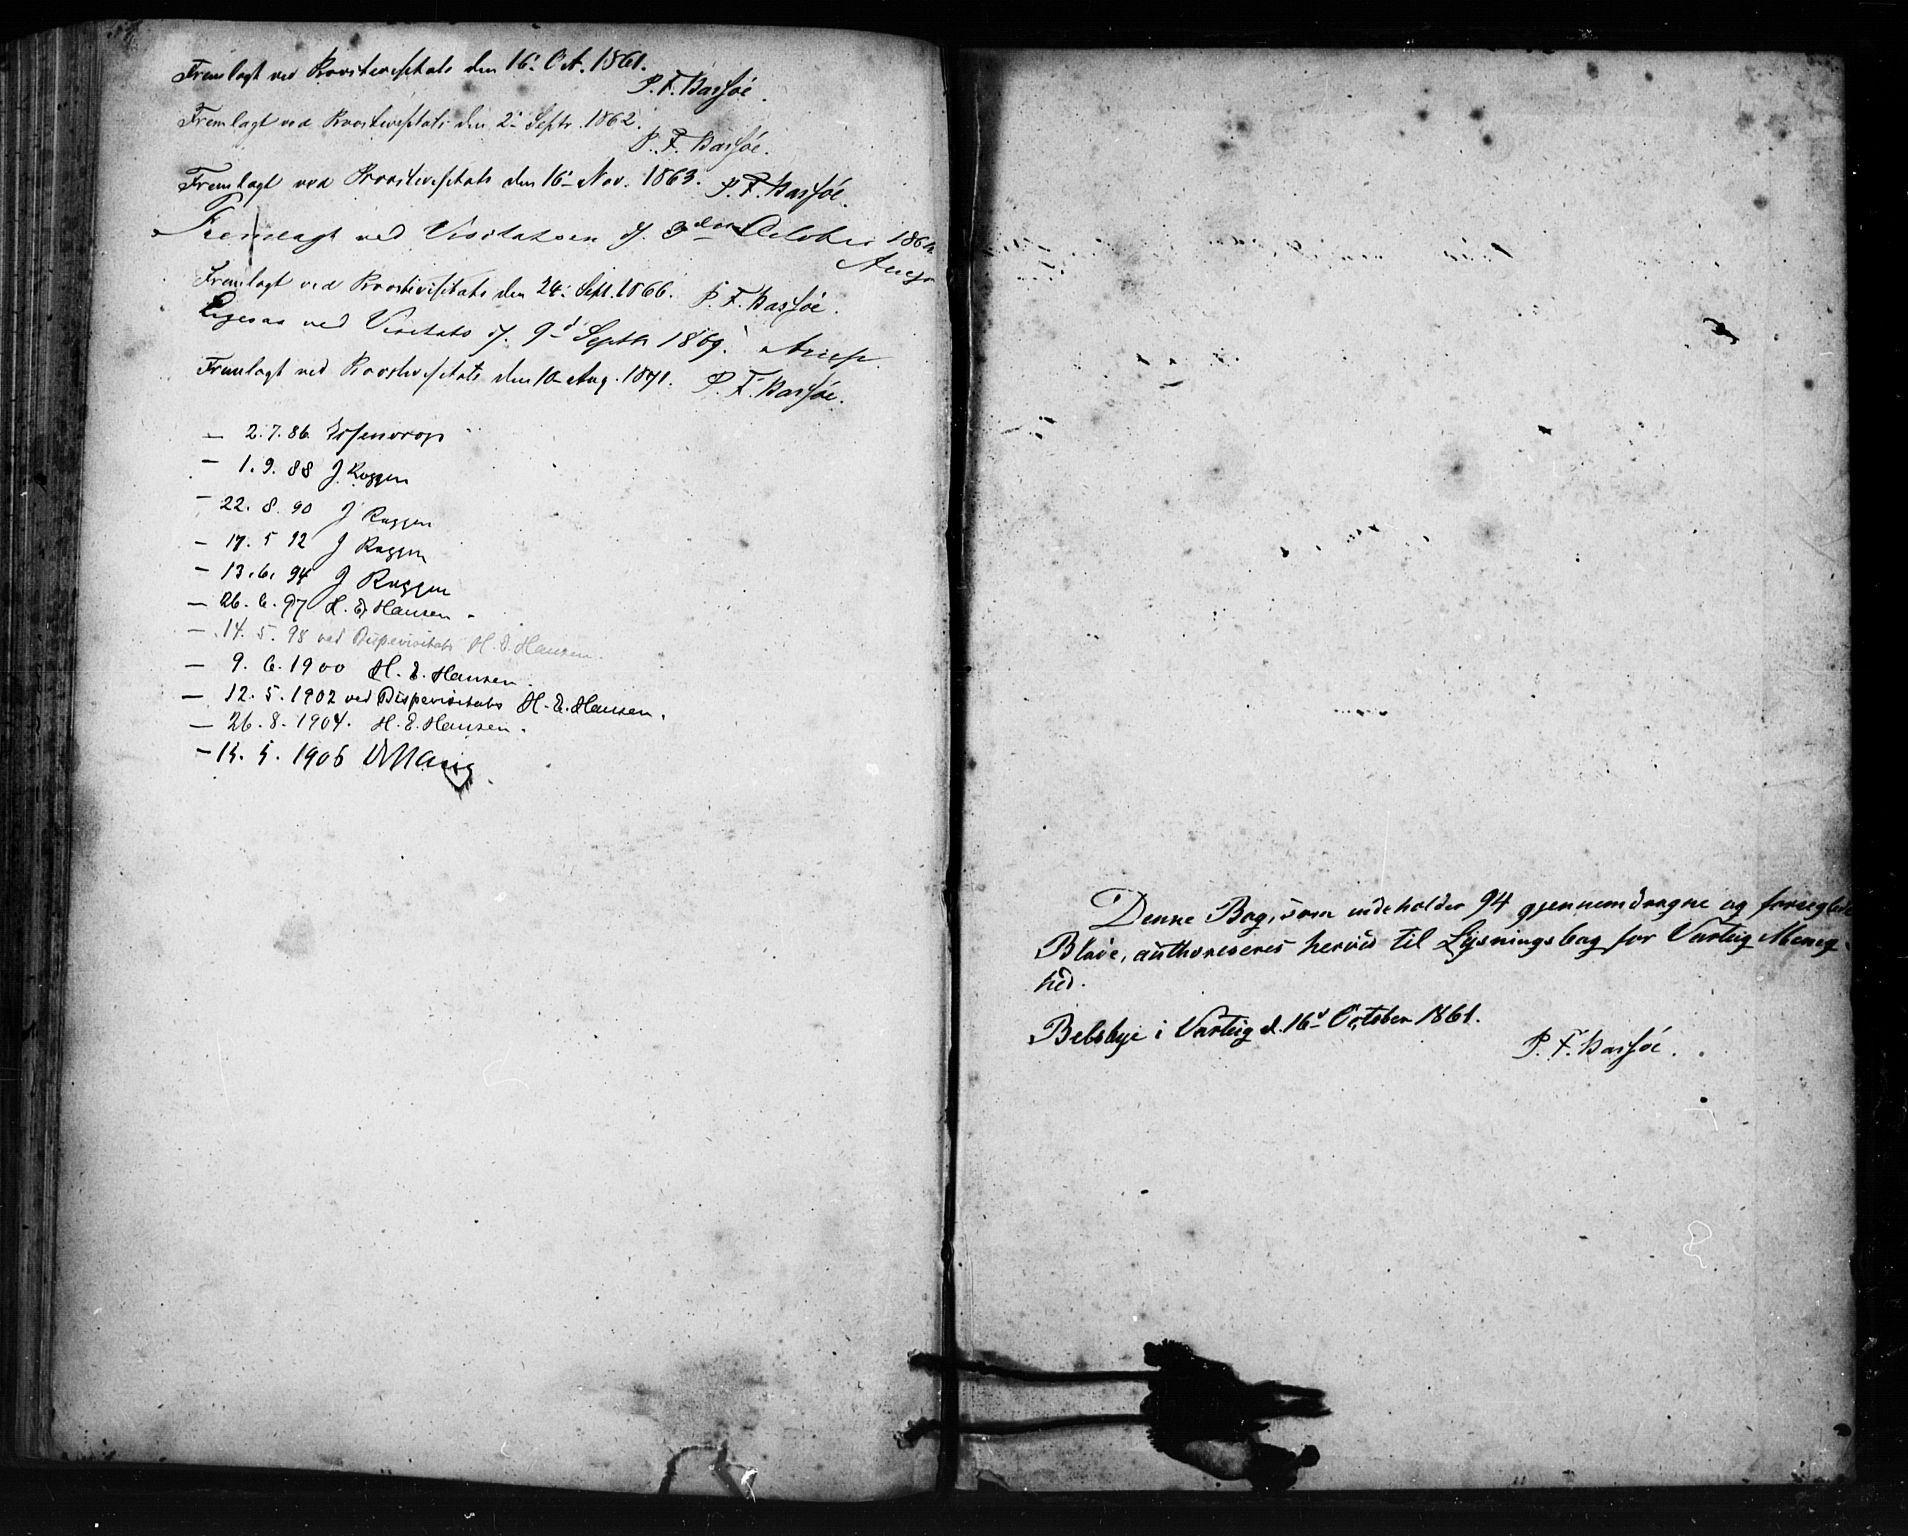 Fremlagt ved Provstevisitats den 16. Oct. 1861.
P. F. Bassøe.
Fremlagt ved Provstevisitats den 2. Septr. 1862.
P. F. Bassøe.
Fremlagt ved Provstevisitats den 16. Nov. 1863. P. F. Bassøe.
Fremlagt ved Visitatsen d. 3die October 186
Arup
Fremlagt ved Provstevisitats den 24. Sept. 1866. P. F. Bassøe.
Ligesaa ved Visitats d. 9d Septb 1869. Arup
Fremlagt ved Provstevisitats den 10 Aug. 1871. P. F. Bassøe.
— 2. 7. 86 Essendrop
— 1. 9. 88 J. Roggen
— 22. 8. 90 J Roggen
— 17. 5 92 J Roggen
— 13. 6. 94 J Roggen
— 26. 6. 97 H. E. Hansen.
— 14. 5. 98 ved Bispevisitats H. E. Hansen.
— 9. 6. 1900 H. E. Hansen.
— 12. 5. 1902 ved Bispevisitats H. E. Hansen.
— 26. 8. 1904. H. E. Hansen.
— 5. 1906
Denne Bog, som indeholder 94 gjennemdragne og forseglede
Blade, authoriseres herved til Lysningsbog for Varteig Menig-
hed.
Belsbye i Varteig d. 16d October 1861.
P. F. Bassøe.